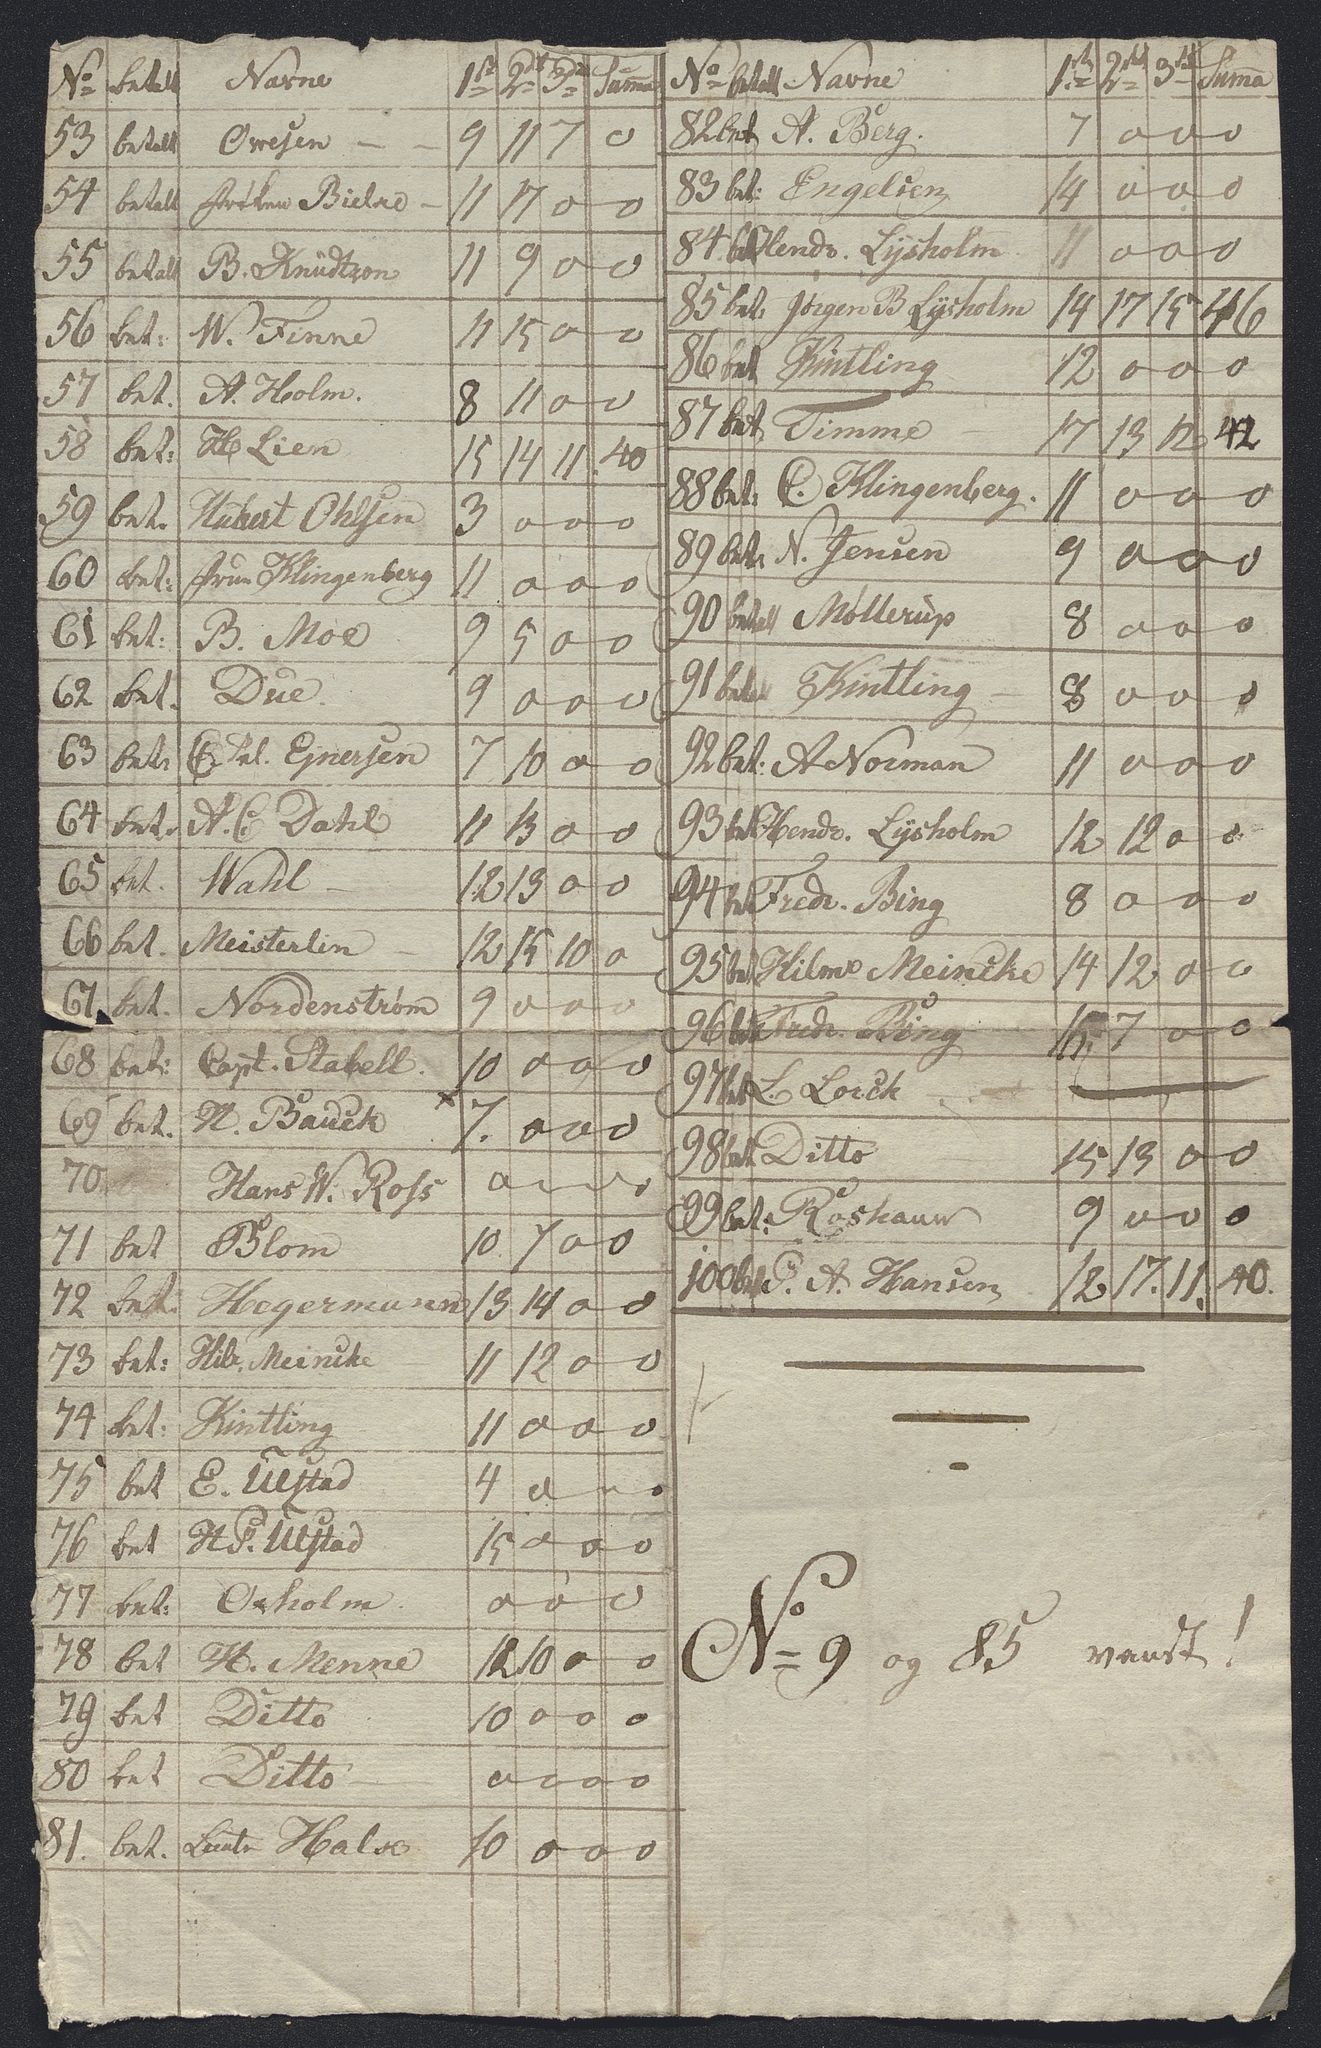 No betalt Navne 1ste 2de 3de Summa
53 betalt Owesen - - 9 11 7 0
54 betalt frøken Bielke - 11 17 0 0
55 betalt B. Knüdtzon 11 9 0 0
56 bet: W. Finne 11 15 0 0
57 bet. A. Holm. 8 11 0 0
58 bet: H Lien 15 14 11 40
59 bet. Hubert Ohlsen 3 0 0 0
60 bet: frue Klingenberg 11 0 0 0
61 bet: B. Moe 9 5 0 0
62 bet. Due. 9 0 0 0
63 bet: Ejnersen 7 10 0 0
64 bet. A. C. Dahl 11 13 0 0
65 bet. Wahl - 12 13 0 0
66 bet. Meisterlin - 12 15 10 0
67. bet. Nordenstrøm 9 0 0 0
68 bet: Capt. Stabell. 10 0 0 0
69 bet. N. Bauck x 7. 0 0 0
70 Hans W. Ross 0 0 0 0
71 bet Blom 10 7 0 0
72 bet. Hegermann 13 14 0 0
73 bet: Hilr. Meincke 11 12 0 0
74 bet: Kintling 11 0 0 0
75 bet E. Ulstad 4 0 0 0
76 bet H P. Ulstad 15 0 0 0
77 bet: Oxholm. 0 0 0
78 bet H. Menne 12 10 0 0
79 bet Ditto 10 0 0 0
80 bet Ditto 0 0 0 0
81. bet. Lieutn Halse 10 0 0 0
No betalt Navne 1ste 2de 3de Summa
82 bet A. Berg. 7 0 0 0
83 bet: Engelsen 14 0 0 0
84 bet Hendr. Lysholm 11 0 0 0
85 bet. Jørgen B Lysholm 14 17 15 46
86 bet Kintling 12 0 0 0
87 bet Timme 17 13 12 42
88 bet: C. Klingenberg. 11 0 0 0
89 bet: N. Jensen 9 0 0 0
90 betalt Møllerüp 8 0 0 0
91 betalt Kintling - 8 0 0 0
92 bet: A Norman 11 0 0 0
93 bet Hendr. Lysholm 12 12 0 0
94 bet Fredr. Bing 8 0 0 0
95 bet Hilmr Meincke 14 12 0 0
96 bet Fredr. Bing 15 7 0 0
97 bet L. Lorck
98 bet Ditto 15 13 0 0
99 bet: Roshauw 9 0 0 0
100 bet P. A. Hansen 12 17. 11. 40.
No 9 og 85 vandt!